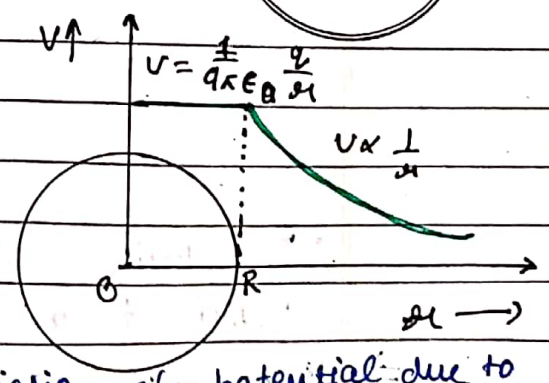 V↑
V = 1/4πε₀ q/r
V ∝ 1/r
O R
r →
potential due to